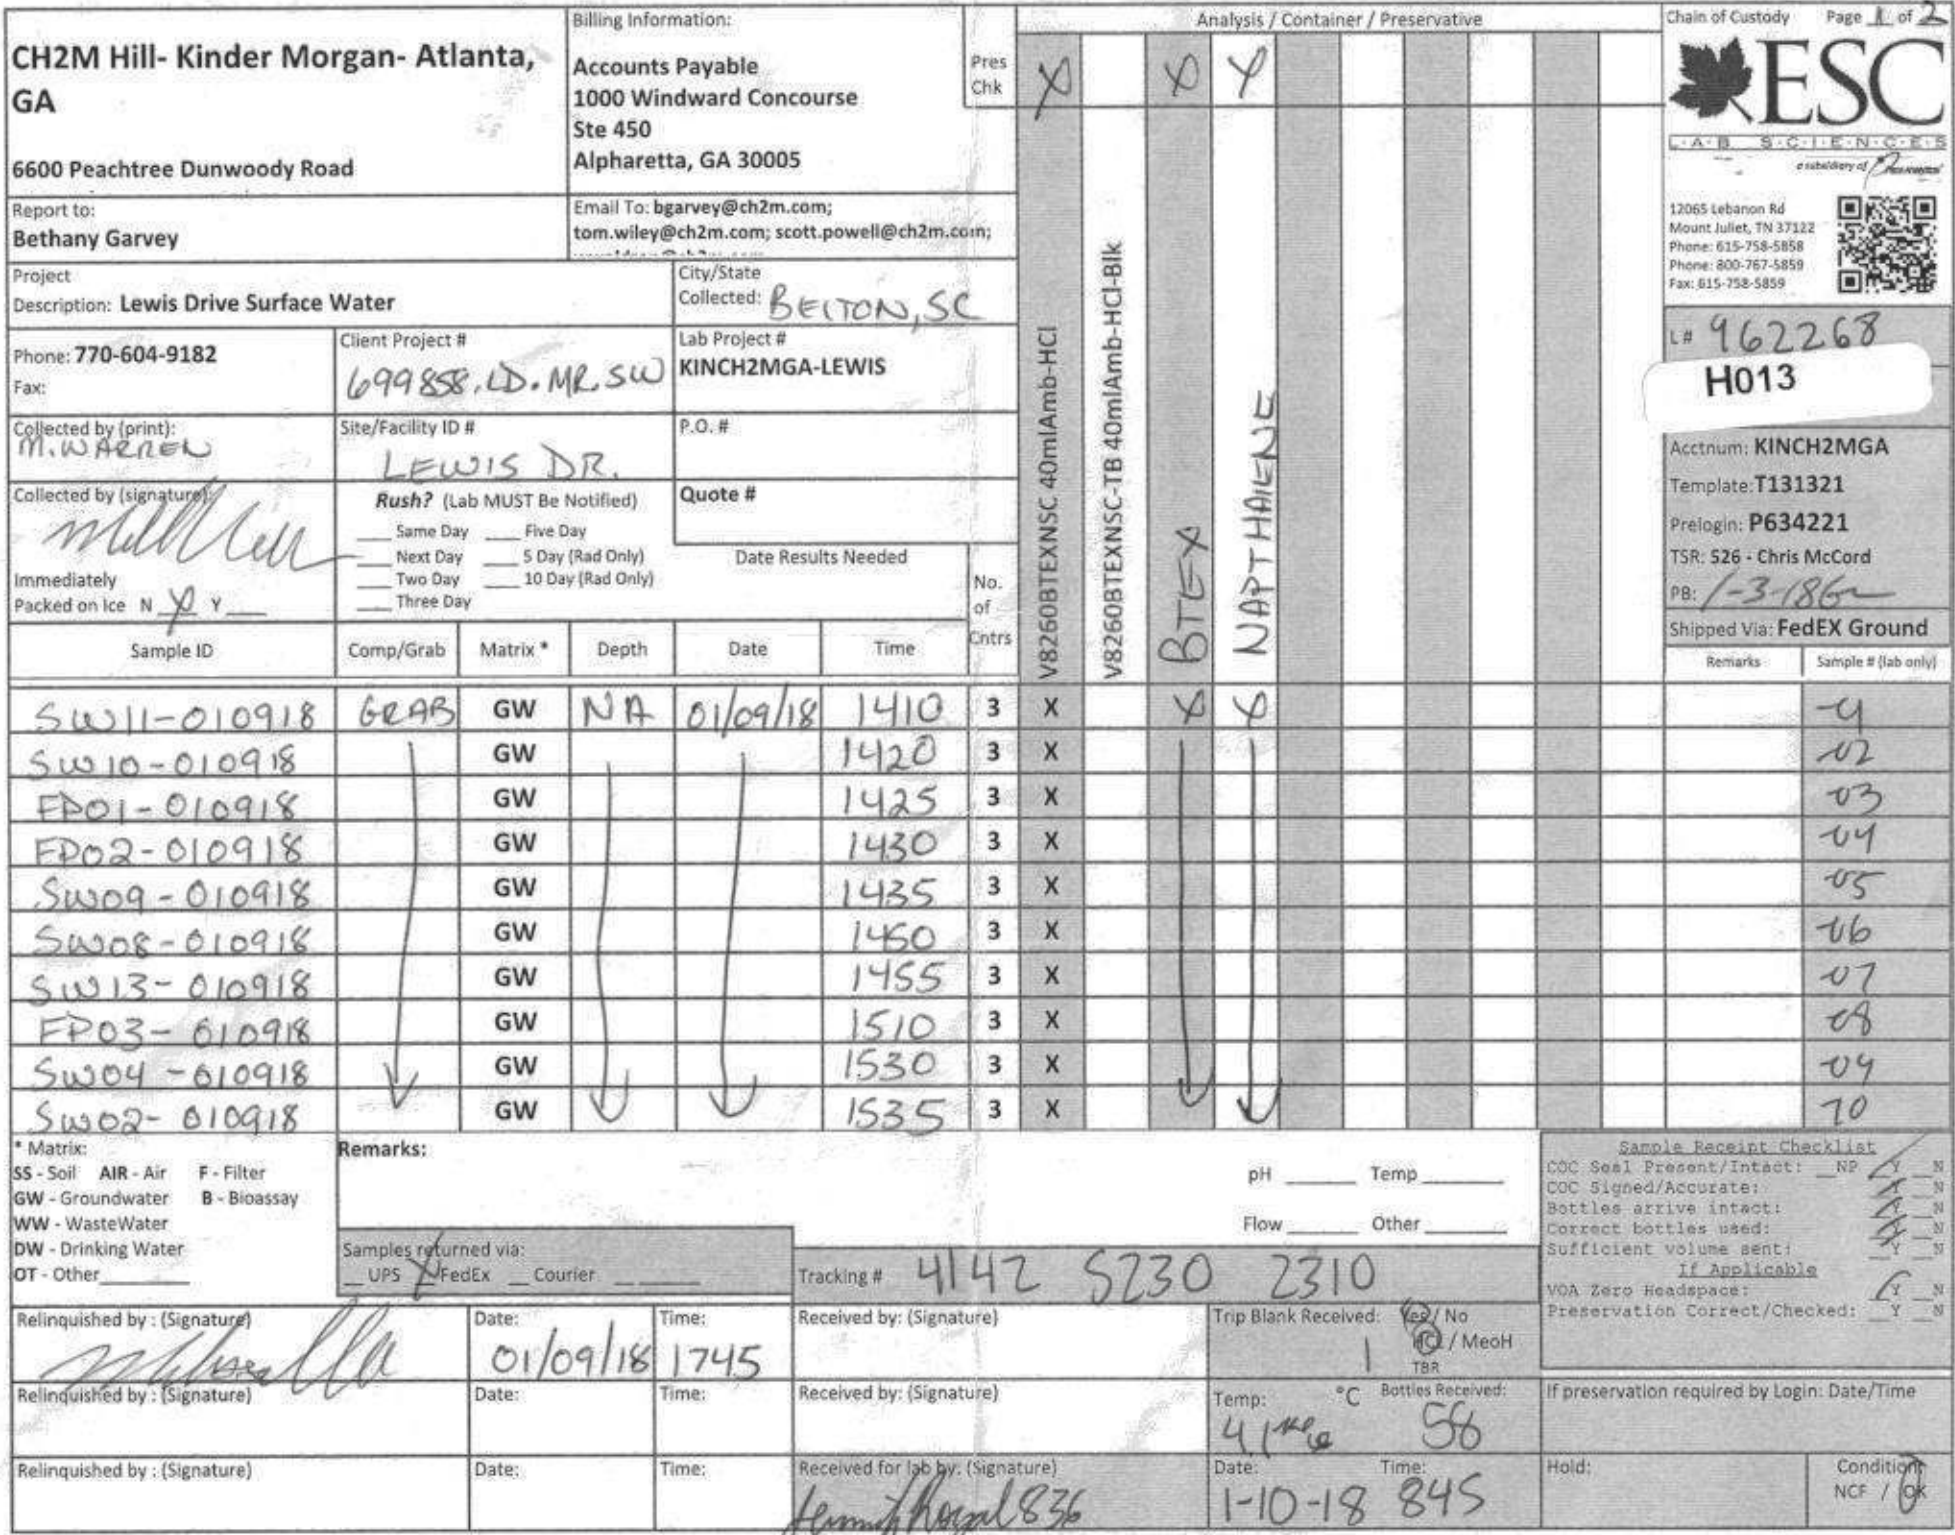 CH2M Hill- Kinder Morgan- Atlanta,
GA
6600 Peachtree Dunwoody Road
Billing Information:
Accounts Payable
1000 Windward Concourse
Ste 450
Alpharetta, GA 30005
Pres
Chk
Analysis / Container / Preservative
X X X
Chain of Custody Page 1 of 2
ESC
L·A·B S·C·I·E·N·C·E·S
a subsidiary of
12065 Lebanon Rd
Mount Juliet, TN 37122
Phone: 615-758-5858
Phone: 800-767-5859
Fax: 615-758-5859
Report to:
Bethany Garvey
Email To: bgarvey@ch2m.com;
tom.wiley@ch2m.com; scott.powell@ch2m.com;
Project
Description: Lewis Drive Surface Water
City/State
Collected: BELTON, SC
Phone: 770-604-9182
Fax:
Client Project #
699858.LD.MR.SW
Lab Project #
KINCH2MGA-LEWIS
L# 962268
H013
Collected by (print):
M. WARREN
Site/Facility ID #
LEWIS DR.
P.O. #
Acctnum: KINCH2MGA
Template: T131321
Prelogin: P634221
TSR: 526 - Chris McCord
PB: 1-3-18
Shipped Via: FedEX Ground
Collected by (signature):
Rush? (Lab MUST Be Notified)
___ Same Day ___ Five Day
___ Next Day ___ 5 Day (Rad Only)
___ Two Day ___ 10 Day (Rad Only)
___ Three Day
Quote #
Date Results Needed
Immediately
Packed on Ice N X Y ___
No.
of
Cntrs
V8260BTEXNSC 40mlAmb-HCl
V8260BTEXNSC-TB 40mlAmb-HCl-Blk
BTEX
NAPTHALENE
Sample ID Comp/Grab Matrix * Depth Date Time Remarks Sample # (lab only)
SW11-010918 GRAB GW NA 01/09/18 1410 3 X X X -01
SW10-010918 GW 1420 3 X -02
FP01-010918 GW 1425 3 X -03
FP02-010918 GW 1430 3 X -04
SW09-010918 GW 1435 3 X -05
SW08-010918 GW 1450 3 X -06
SW13-010918 GW 1455 3 X -07
FP03-010918 GW 1510 3 X -08
SW04-010918 GW 1530 3 X -09
SW02-010918 GW 1535 3 X 10
* Matrix:
SS - Soil AIR - Air F - Filter
GW - Groundwater B - Bioassay
WW - WasteWater
DW - Drinking Water
OT - Other
Remarks:
pH ___ Temp ___
Flow ___ Other ___
Samples returned via:
__ UPS X FedEx __ Courier
Tracking # 4142 5230 2310
Sample Receipt Checklist
COC Seal Present/Intact: __NP __Y __N
COC Signed/Accurate: __Y __N
Bottles arrive intact: __Y __N
Correct bottles used: __Y __N
Sufficient volume sent: __Y __N
If Applicable
VOA Zero Headspace: __Y __N
Preservation Correct/Checked: __Y __N
Relinquished by : (Signature)
Date:
01/09/18
Time:
1745
Received by: (Signature)
Trip Blank Received: Yes / No
1 HCl / MeoH
TBR
Relinquished by : (Signature)
Date:
Time:
Received by: (Signature)
Temp: °C Bottles Received:
4.1 56
If preservation required by Login: Date/Time
Relinquished by : (Signature)
Date:
Time:
Received for lab by: (Signature)
836
Date: Time:
1-10-18 845
Hold:
Condition:
NCF / OK